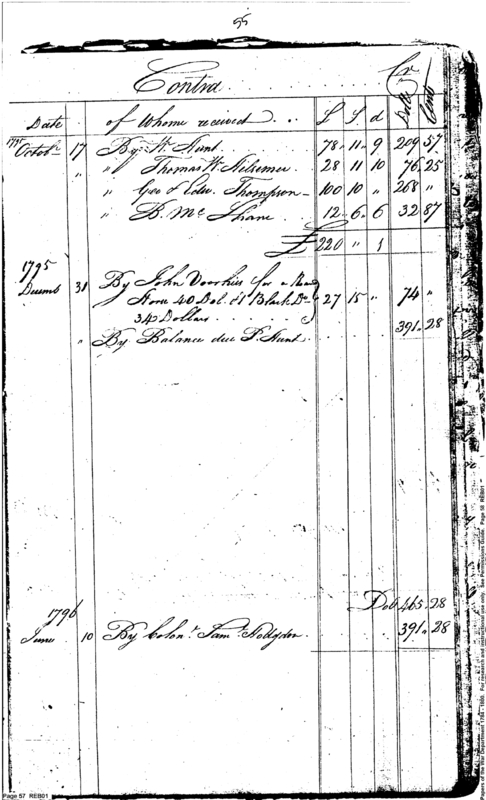 55
Contra Cr
Date of Whome received £ S d Dolls Cents
1795
Octobr 17 By W. Hunt 78 11 9 209 57
" " Thomas W. 28 11 10 76 25
" Geo & Edw. Thompson 100 10 " 268 "
" B. Mc Shane 12 6 6 32 87
£ 220 " 1
1795
Decemb 31 By John Voorhies for a
Horse 40 Dol. & 1 Black Do 27 15 " 74 "
34 Dollars
391 28
" By Balance due P. Hunt
Dol 465 28
1796
June 10 By Colonl. Saml. Hodgdon 391 28
Page 57 REB01
Papers of the War Department 1784 - 1800. For research and instructional use only. See Permissions Guide. Page 58 REB01